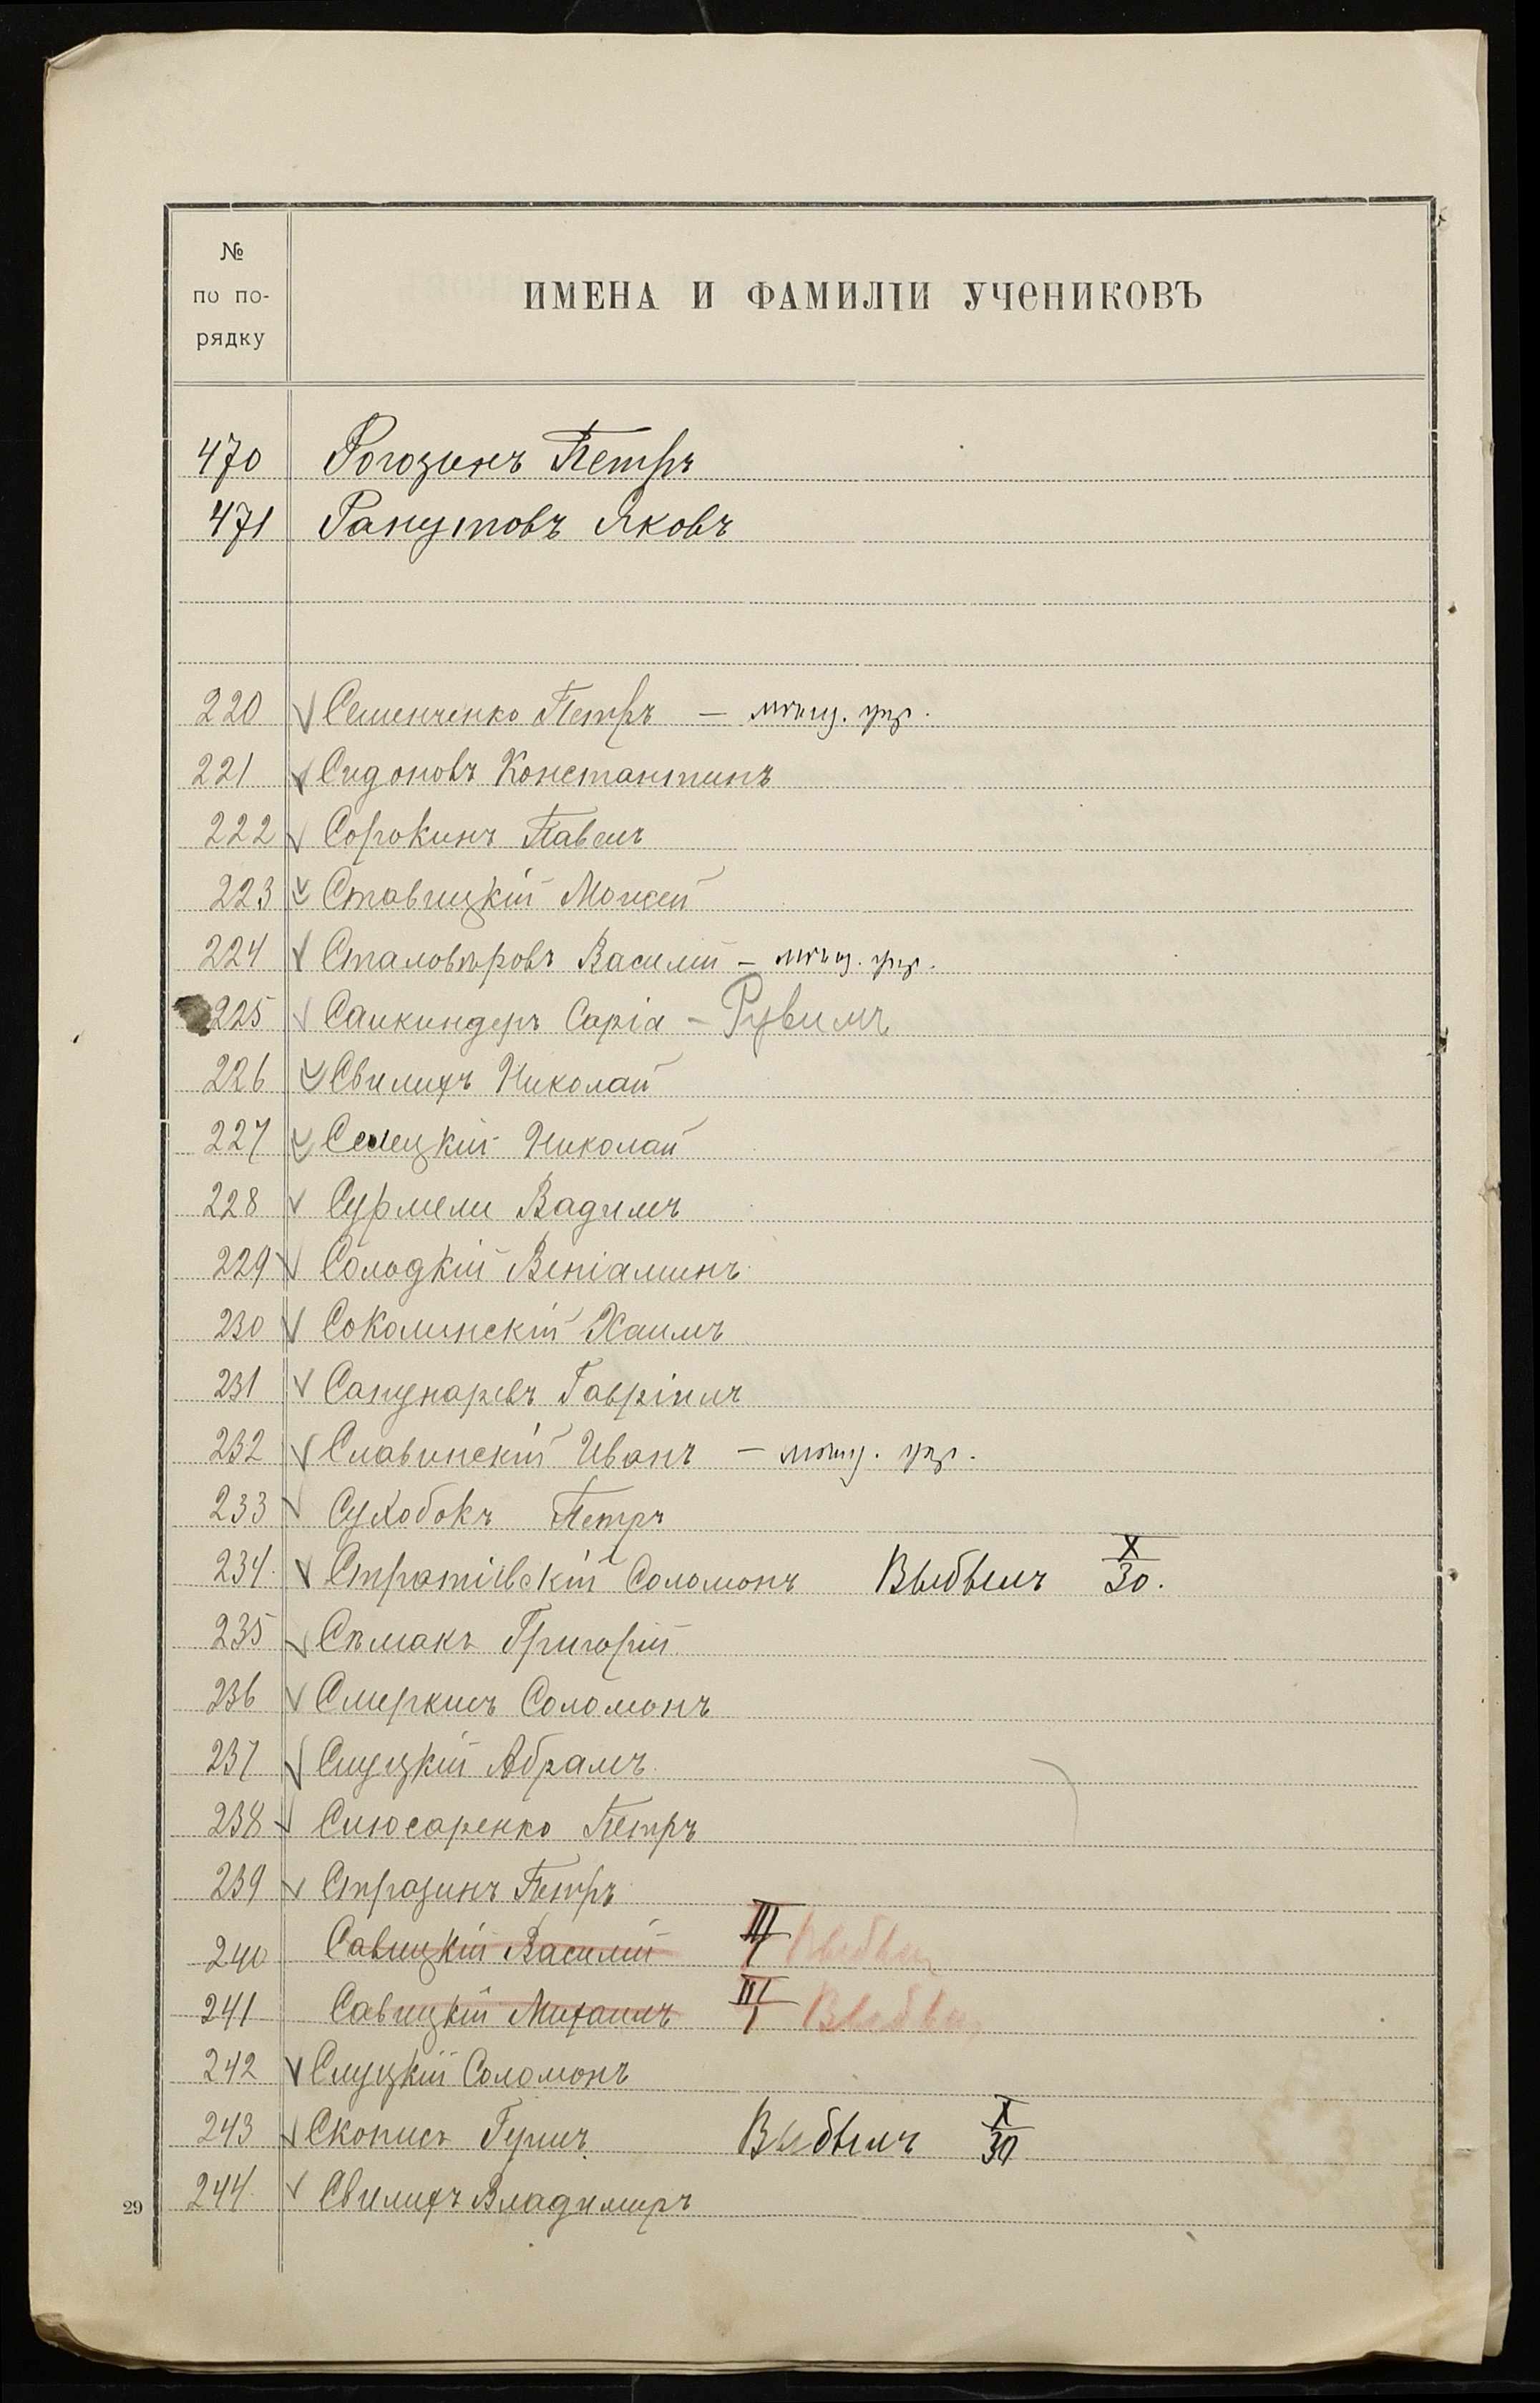 №
по по-
рядку
ИМЕНА И ФАМИЛІИ УЧЕНИКОВЪ
470 Рогозинъ Петръ
471 Рапутовъ Яковъ
220 Семенченко Петръ —
221 Сидоновъ Константинъ
222 Сорокинъ Павелъ
223 Ставицкій Моисей
224 Сталовѣровъ Василій —
225 Саикиндеръ Сарія — Рувимъ
226 Свилихъ Николай
227 Селецкій Николай
228 Сурмели Вадимъ
229 Солодкій Веніаминъ
230 Соколинскій Хаимъ
231 Сапунаревъ Гавріилъ
232 Славинскій Иванъ —
233 Сухобокъ Петръ
234 Стратіевскій Соломонъ Выбылъ X/30.
235 Сѣмакъ Григорій
236 Смеркисъ Соломонъ
237 Слуцкій Абрамъ
238 Слюсаренко Петръ
239 Стразинъ Петръ
240 Савицкій Василій III/1 Выбыл
241 Савицкій Михаилъ III/1 Выбыл
242 Слуцкій Соломонъ
243 Скописъ Гершъ Выбылъ X/30
244 Свилихъ Владимиръ
29